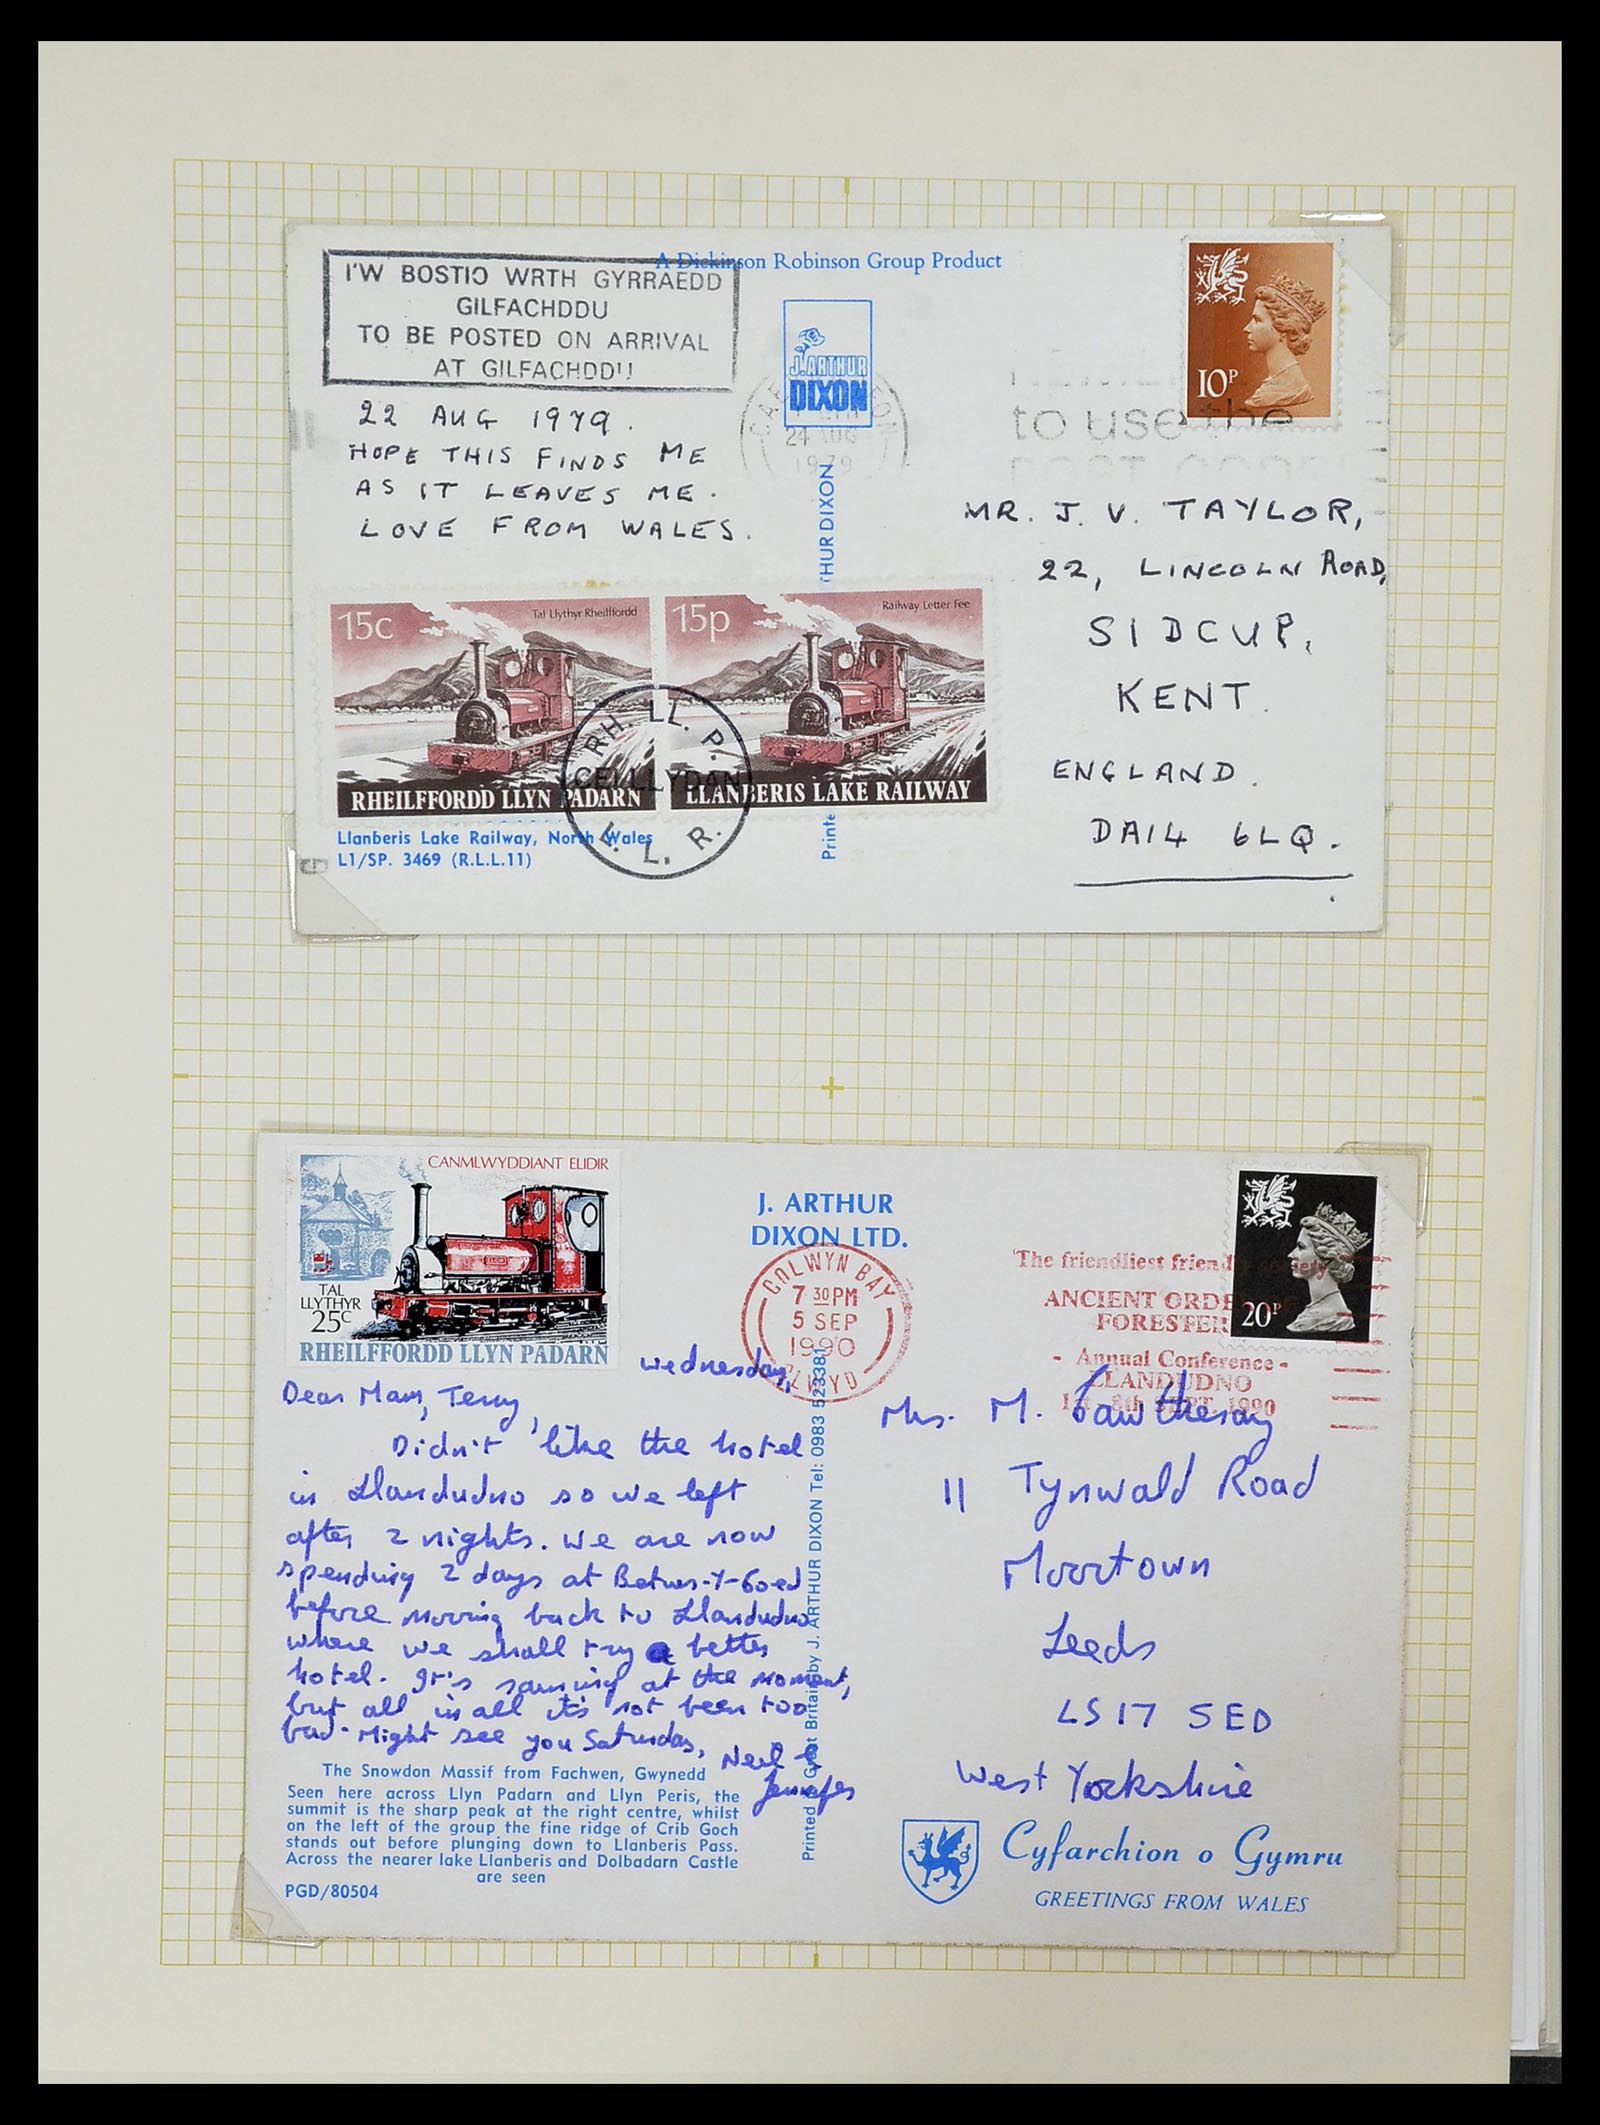 I'W BOSTIO WRTH GYRRAEDD
GILFACHDDU
TO BE POSTED ON ARRIVAL
AT GILFACHDDU
A Dickinson Robinson Group Product
J. ARTHUR
DIXON
10P
24 AUG
1979
to use the
22 AUG 1979.
HOPE THIS FINDS ME
AS IT LEAVES ME.
LOVE FROM WALES.
MR. J. V. TAYLOR,
22, LINCOLN ROAD,
SIDCUP,
KENT.
ENGLAND.
DA14 6LQ.
15c
Tal Llythyr Rheilffordd
RHEILFFORDD LLYN PADARN
15p
Railway Letter Fee
LLANBERIS LAKE RAILWAY
RH. LL. P.
CEI LLYDAN
L. L. R.
Llanberis Lake Railway, North Wales
L1/SP. 3469 (R.L.L.11)
CANMLWYDDIANT ELIDIR
TAL
LLYTHYR
25c
RHEILFFORDD LLYN PADARN
J. ARTHUR
DIXON LTD.
COLWYN BAY
7 30PM
5 SEP
1990
CLWYD
'The friendliest friendly society'
ANCIENT ORDER OF
FORESTERS
- Annual Conference -
LLANDUDNO
SEPT. 1990
20P
Wednesday,
Dear Mam, Terry,
Didn't like the hotel
in Llandudno so we left
after 2 nights. We are now
spending 2 days at Betws-Y-Coed
before moving back to Llandudno
where we shall try a better
hotel. It's raining at the moment,
but all in all it's not been too
bad. Might see you Saturday,
Neil &
Jennifer
Mrs. M. Fawthesay
11 Tynwald Road
Moortown
Leeds
LS17 5ED
West Yorkshire
Printed in Great Britain by J. ARTHUR DIXON Tel: 0983 523381
The Snowdon Massif from Fachwen, Gwynedd
Seen here across Llyn Padarn and Llyn Peris, the
summit is the sharp peak at the right centre, whilst
on the left of the group the fine ridge of Crib Goch
stands out before plunging down to Llanberis Pass.
Across the nearer lake Llanberis and Dolbadarn Castle
are seen
PGD/80504
Cyfarchion o Gymru
GREETINGS FROM WALES